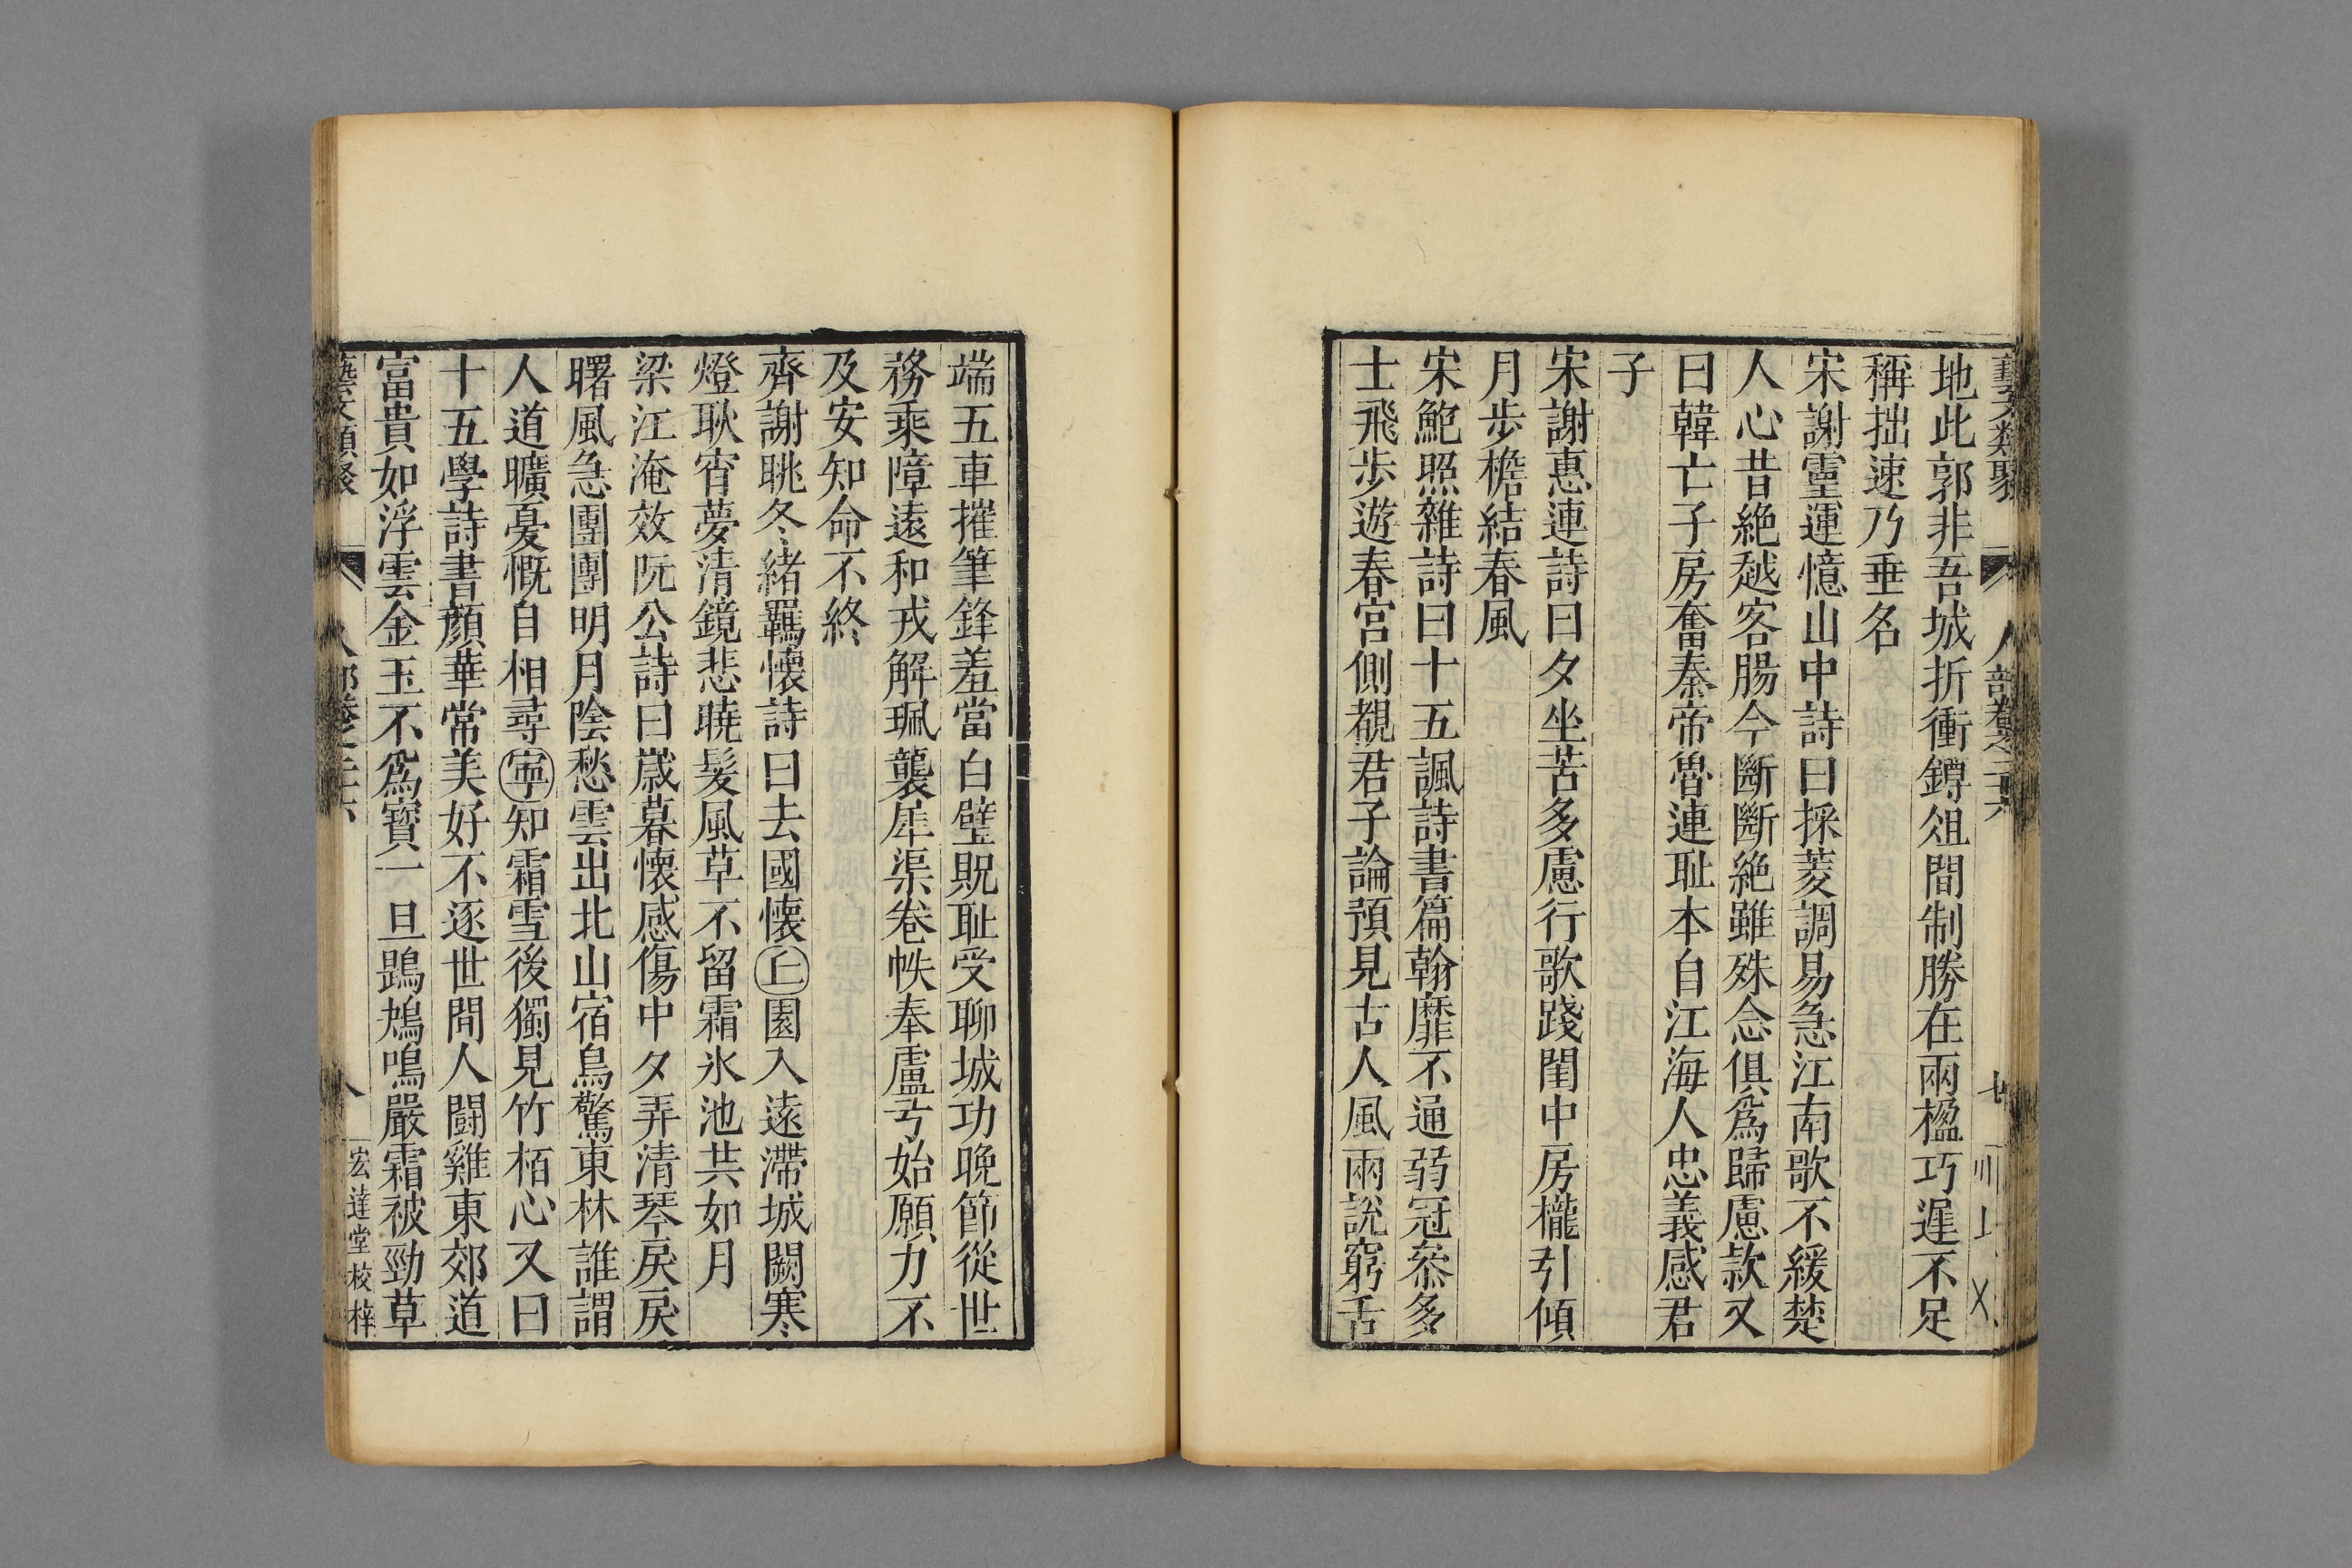 藝文類聚 人部卷之二十六 七
地此郭非吾城折衝鐏俎間制勝在兩楹巧遲不足
稱拙速乃垂名
宋謝靈運憶山中詩曰採菱調易急江南歌不緩楚
人心昔絶越客腸今斷斷絶雖殊念俱爲歸慮款又
曰韓亡子房奮秦帝魯連耻本自江海人忠義感君
子
宋謝惠連詩曰夕坐苦多慮行歌踐閨中房櫳引傾
月步檐結春風
宋鮑照雜詩曰十五諷詩書篇翰靡不通弱冠叅多
士飛步遊春宮側覩君子論預見古人風兩說窮舌
端五車摧筆鋒羞當白璧貺耻受聊城功晚節從世
務乘障遠和戎解珮襲犀渠卷帙奉盧弓始願力不
及安知命不終
齊謝眺冬緒羈懷詩曰去國懷丘園入遠滯城闕寒
燈耿宵夢清鏡悲曉髮風草不留霜氷池共如月
梁江淹效阮公詩曰歲暮懷感傷中夕弄清琴戾戾
曙風急團團明月陰愁雲出北山宿鳥驚東林誰謂
人道曠憂慨自相尋寕知霜雪後獨見竹栢心又曰
十五學詩書顏華常美好不逐世間人鬬雞東郊道
富貴如浮雲金玉不爲寳一旦鶗鴂鳴嚴霜被勁草
藝文類聚 人部卷之二十六 八 宏達堂校梓